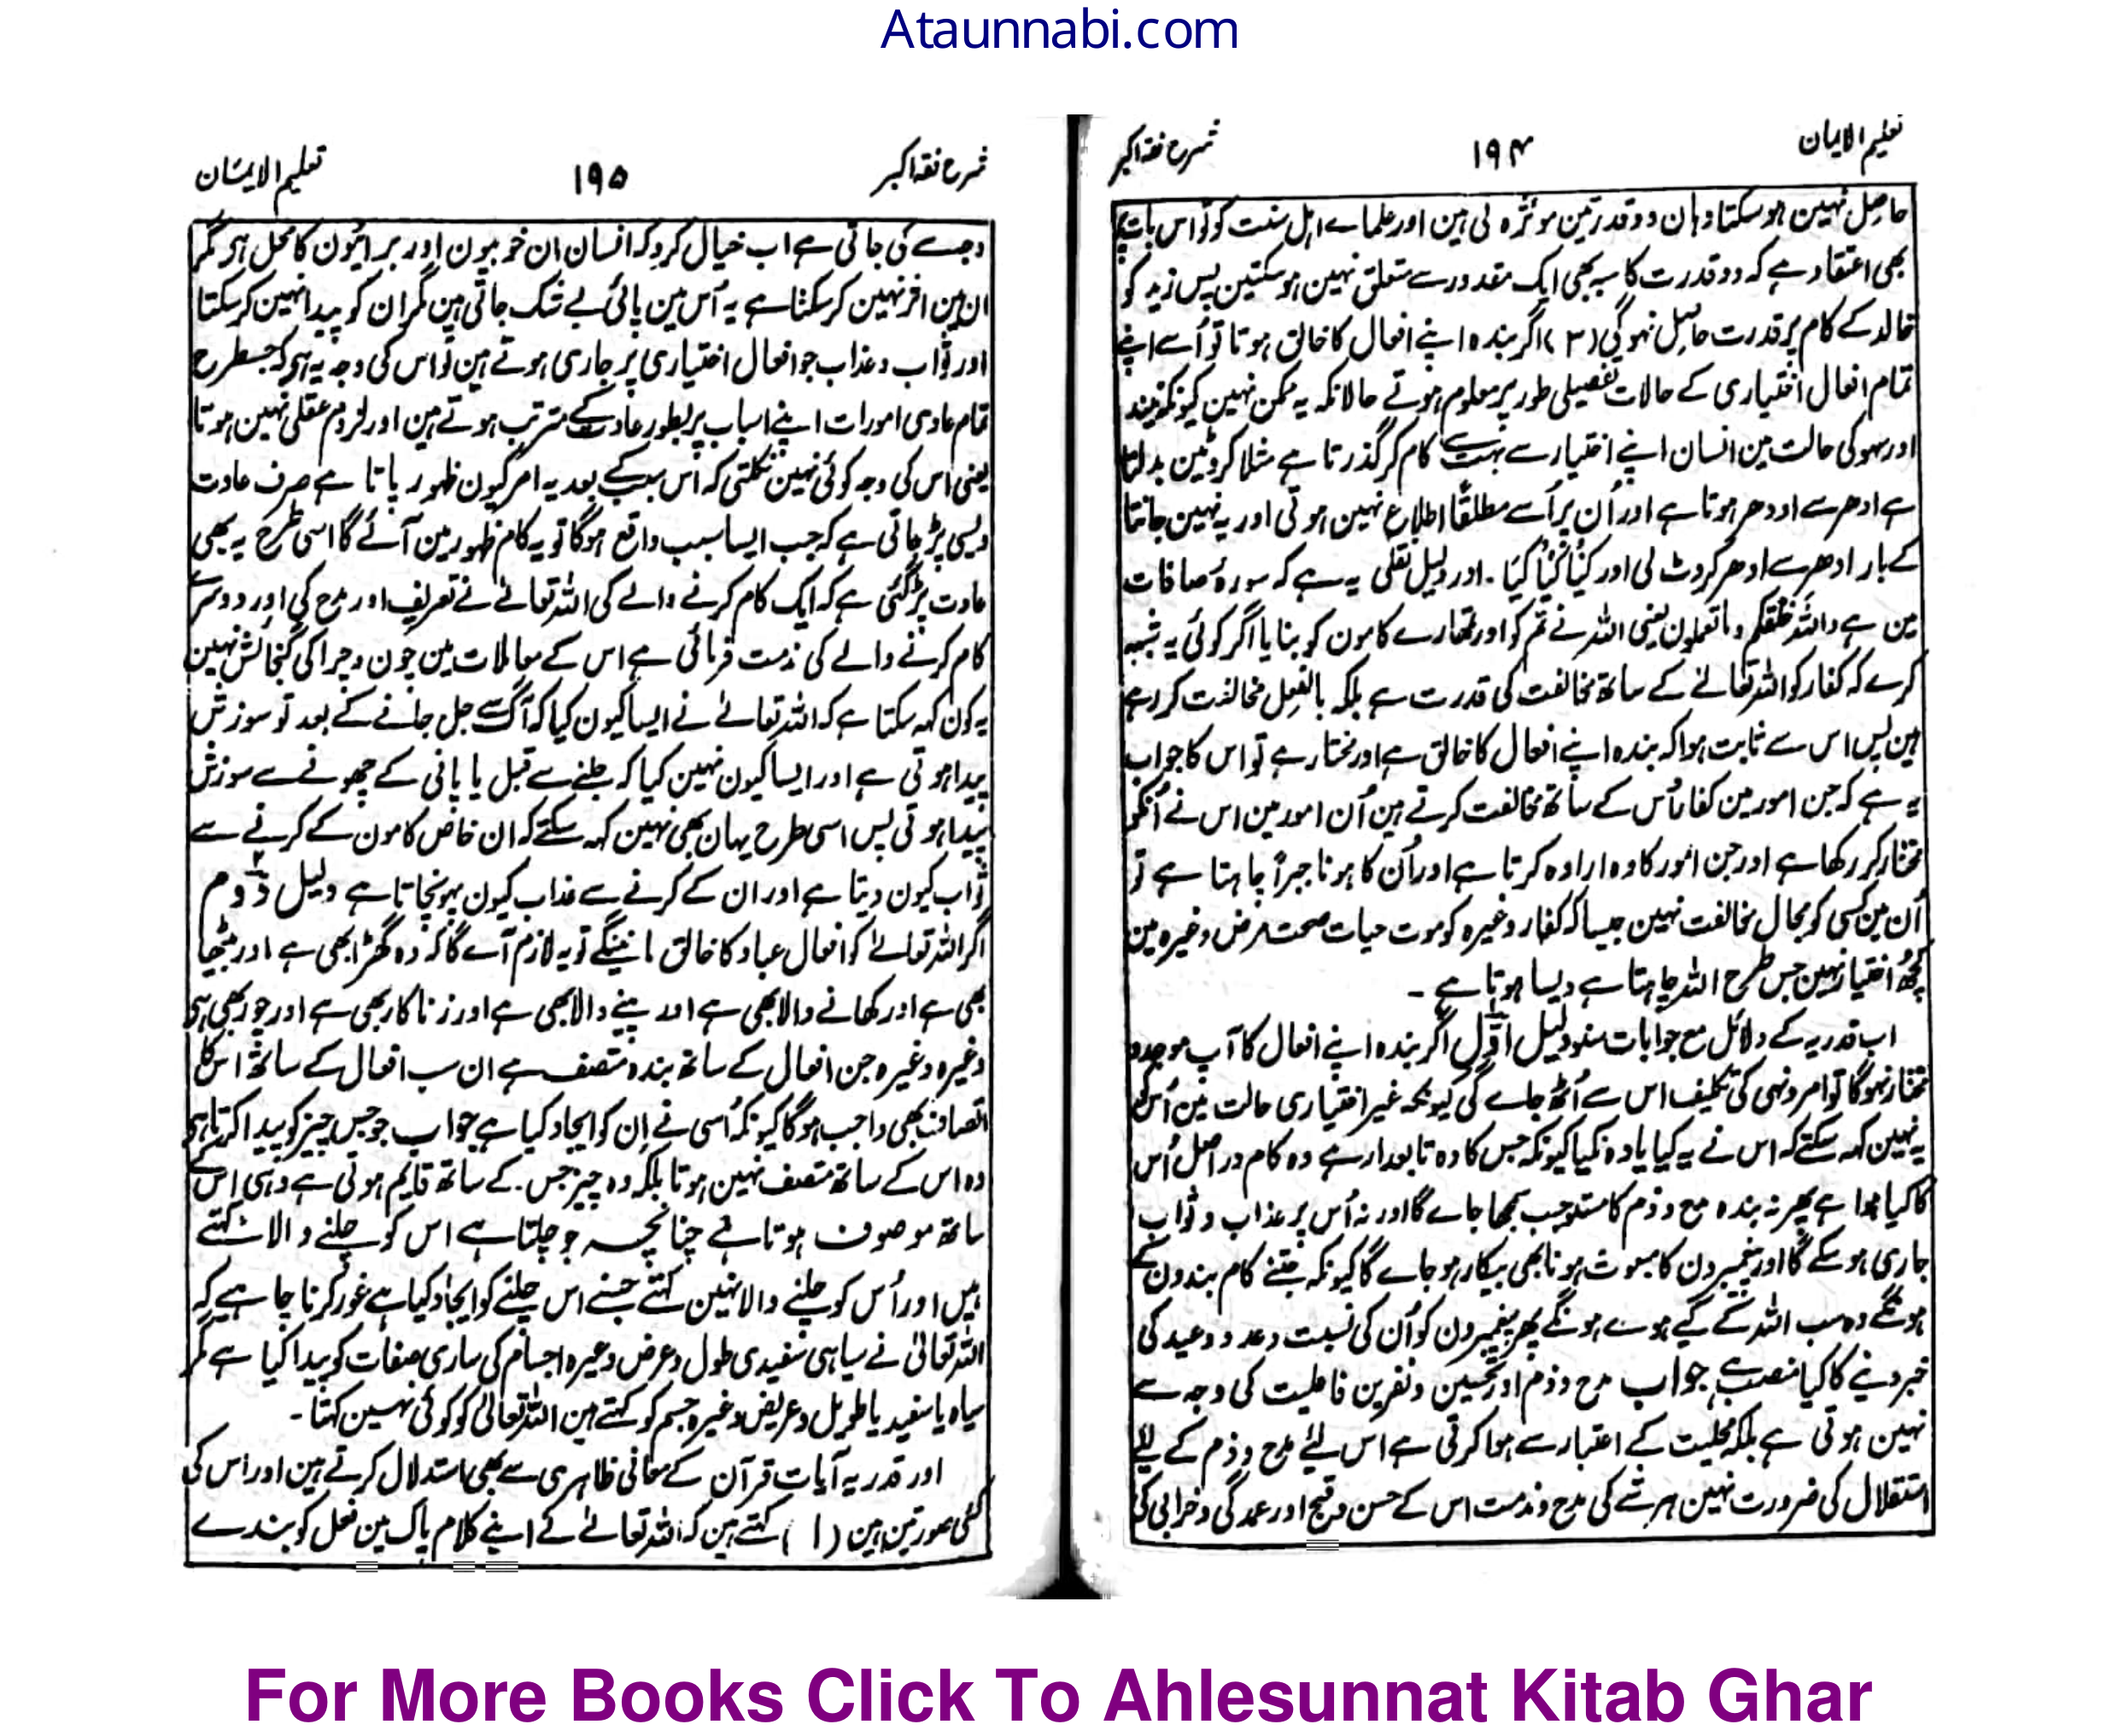 Ataunnabi.com
تعلیم الایمان
۱۹۴
شرح فقہ اکبر
حاصل نہین ہوسکتا وہان دو قدرتین موثرہ لی ہین اور علماے اہل سنت کو تو اس بات پر
بھی اعتقاد ہے کہ دو قدرت کاسبہ بھی ایک مقدور سے متعلق نہین ہوسکتین پس زید کو
خالد کے کام پر قدرت حاصل نہوگی (۳) اگر بندہ اپنے افعال کا خالق ہوتا تو اُسے اپنے
تمام افعال اختیاری کے حالات تفصیلی طور پر معلوم ہوتے حالانکہ یہ ممکن نہین کیونکہ نیند
اور سہو کی حالت مین انسان اپنے اختیار سے بہت سے کام کر گذرتا ہے مثلا کروٹین بدلتا
ہے ادھر سے اودھر ہوتا ہے اور اُن پر اُسے مطلقًا اطلاع نہین ہوتی اور یہ نہین جانتا
کے بار ادھر سے ادھر کروٹ لی اور کیا کیا کیا ۔ اور دلیل نقلی یہ ہے کہ سورۂ صافات
مین ہے واللہ خلقکم وما تعملون یعنی اللہ نے تم کو اور تمھارے کامون کو بنایا اگر کوئی یہ شبہہ
کرے کہ کفار کو اللہ تعالےٰ کے ساتھ مخالفت کی قدرت ہے بلکہ بالفعل مخالفت کر رہے
ہین پس اس سے ثابت ہوا کہ بندہ اپنے افعال کا خالق ہے اور مختار ہے تو اس کا جواب
یہ ہے کہ جن امور مین کفار اُس کے ساتھ مخالفت کرتے ہین اُن امور مین اس نے اُنکو
مختار کر رکھا ہے اور جن امور کا وہ ارادہ کرتا ہے اور اُن کا ہونا جبراً چاہتا ہے تو
اُن مین کسی کو مجال مخالفت نہین جیسا کہ کفار وغیرہ کو موت حیات صحت مرض وغیرہ مین
کچھ اختیار نہین جس طرح اللہ چاہتا ہے ویسا ہوتا ہے ۔
اب قدریہ کے دلائل مع جوابات سنو دلیل اوّل اگر بندہ اپنے افعال کا آپ موجد و
مختار نہوگا تو امر و نہی کی تکلیف اس سے اُٹھ جاے گی کیونکہ غیر اختیاری حالت مین اُس کو
یہ نہین کہہ سکتے کہ اس نے یہ کیا یا وہ نکیا کیونکہ جس کا وہ تابعدار ہے وہ کام دراصل اُس
کا کیا ہوا ہے پھر نہ بندہ مدح و ذم کا مستوجب سمجھا جاے گا اور نہ اُس پر عذاب و ثواب
جاری ہوسکے گا اور پیغمبرون کا مبعوث ہونا بھی بیکار ہو جاے گا کیونکہ جتنے کام بندون کے
ہونگے وہ سب اللہ کے کیے ہوے ہونگے پھر پیغمبرون کو اُن کی نسبت وعد و وعید کی
خبر دینے کا کیا منصب ہے جواب مدح و ذم اور تحسین و نفرین فاعلیت کی وجہ سے
نہین ہوتی ہے بلکہ محلیت کے اعتبار سے ہوا کرتی ہے اس لیے مدح و ذم کے لیے
استقلال کی ضرورت نہین ہر شے کی مدح و ذمت اس کے حسن و قبح اور عمدگی و خرابی کی
شرح فقہ اکبر
۱۹۵
تعلیم الایمان
وجہ سے کی جاتی ہے اب خیال کرو کہ انسان ان خوبیون اور برائیون کا محل ہے مگر
ان مین اثر نہین کرسکتا ہے یہ اُس مین پائی بے شک جاتی ہین مگر ان کو پیدا نہین کرسکتا
اور ثواب و عذاب جو افعال اختیاری پر جاری ہوتے ہین تو اس کی وجہ یہ ہے کہ جسطرح
تمام عادی امورات اپنے اسباب پر بطور عادت کے مترتب ہوتے ہین اور لزوم عقلی نہین ہوتا
یعنی اس کی وجہ کوئی نہین نکلتی کہ اس سبب کے بعد یہ امر کیون ظہور پاتا ہے صرف عادت
ویسی پڑ جاتی ہے کہ جب ایسا سبب واقع ہوگا تو یہ کام ظہور مین آئے گا اسی طرح یہ بھی
عادت پڑ گئی ہے کہ ایک کام کرنے والے کی اللہ تعالےٰ نے تعریف اور مدح کی اور دوسرے
کام کرنے والے کی مذمت فرمائی ہے اس کے معاملات مین چون و چرا کی گنجائش نہین
یہ کون کہہ سکتا ہے کہ اللہ تعالےٰ نے ایسا کیون کیا کہ آگ سے جل جانے کے بعد تو سوزش
پیدا ہوتی ہے اور ایسا کیون نہین کیا کہ جلنے سے قبل یا پانی کے چھونے سے سوزش
پیدا ہوتی پس اسی طرح یہان بھی نہین کہہ سکتے کہ ان خاص کامون کے کرنے سے
ثواب کیون دیتا ہے اور ان کے کرنے سے عذاب کیون پہونچاتا ہے دلیل دوم
اگر اللہ تعالےٰ کو افعال عباد کا خالق مانینگے تو یہ لازم آے گا کہ وہ کھڑا بھی ہے اور بیٹھا
بھی ہے اور کھانے والا بھی ہے اور پینے والا بھی ہے اور زناکار بھی ہے اور چور بھی ہے
وغیرہ وغیرہ جن افعال کے ساتھ بندہ متصف ہے ان سب افعال کے ساتھ اس کا
اتصاف بھی واجب ہوگا کیونکہ اُسی نے اِن کو ایجاد کیا ہے جواب جو جس چیز کو پیدا کرتا ہے
وہ اس کے ساتھ متصف نہین ہوتا بلکہ وہ چیز جس کے ساتھ قایم ہوتی ہے وہی اس کے
ساتھ موصوف ہوتا ہے چنانچہ جو چلتا ہے اس کو چلنے والا کہتے
ہیں اور اُس کو چلنے والا نہین کہتے جسنے اس چلنے کو ایجاد کیا ہے غور کرنا چاہیے کہ
اللہ تعالیٰ نے سیاہی سفیدی طول و عرض وغیرہ اجسام کی ساری صفات کو پیدا کیا ہے مگر
سیاہ یا سفید یا طویل و عریض وغیرہ جسم کو کہتے ہین اللہ تعالیٰ کو کوئی نہین کہتا ۔
اور قدریہ آیات قرآن کے معانی ظاہری سے بھی استدلال کرتے ہین اور اس کی
کئی صورتین ہین (۱) کہتے ہین کہ اللہ تعالےٰ کے اپنے کلام پاک مین فعل کو بندے
For More Books Click To Ahlesunnat Kitab Ghar